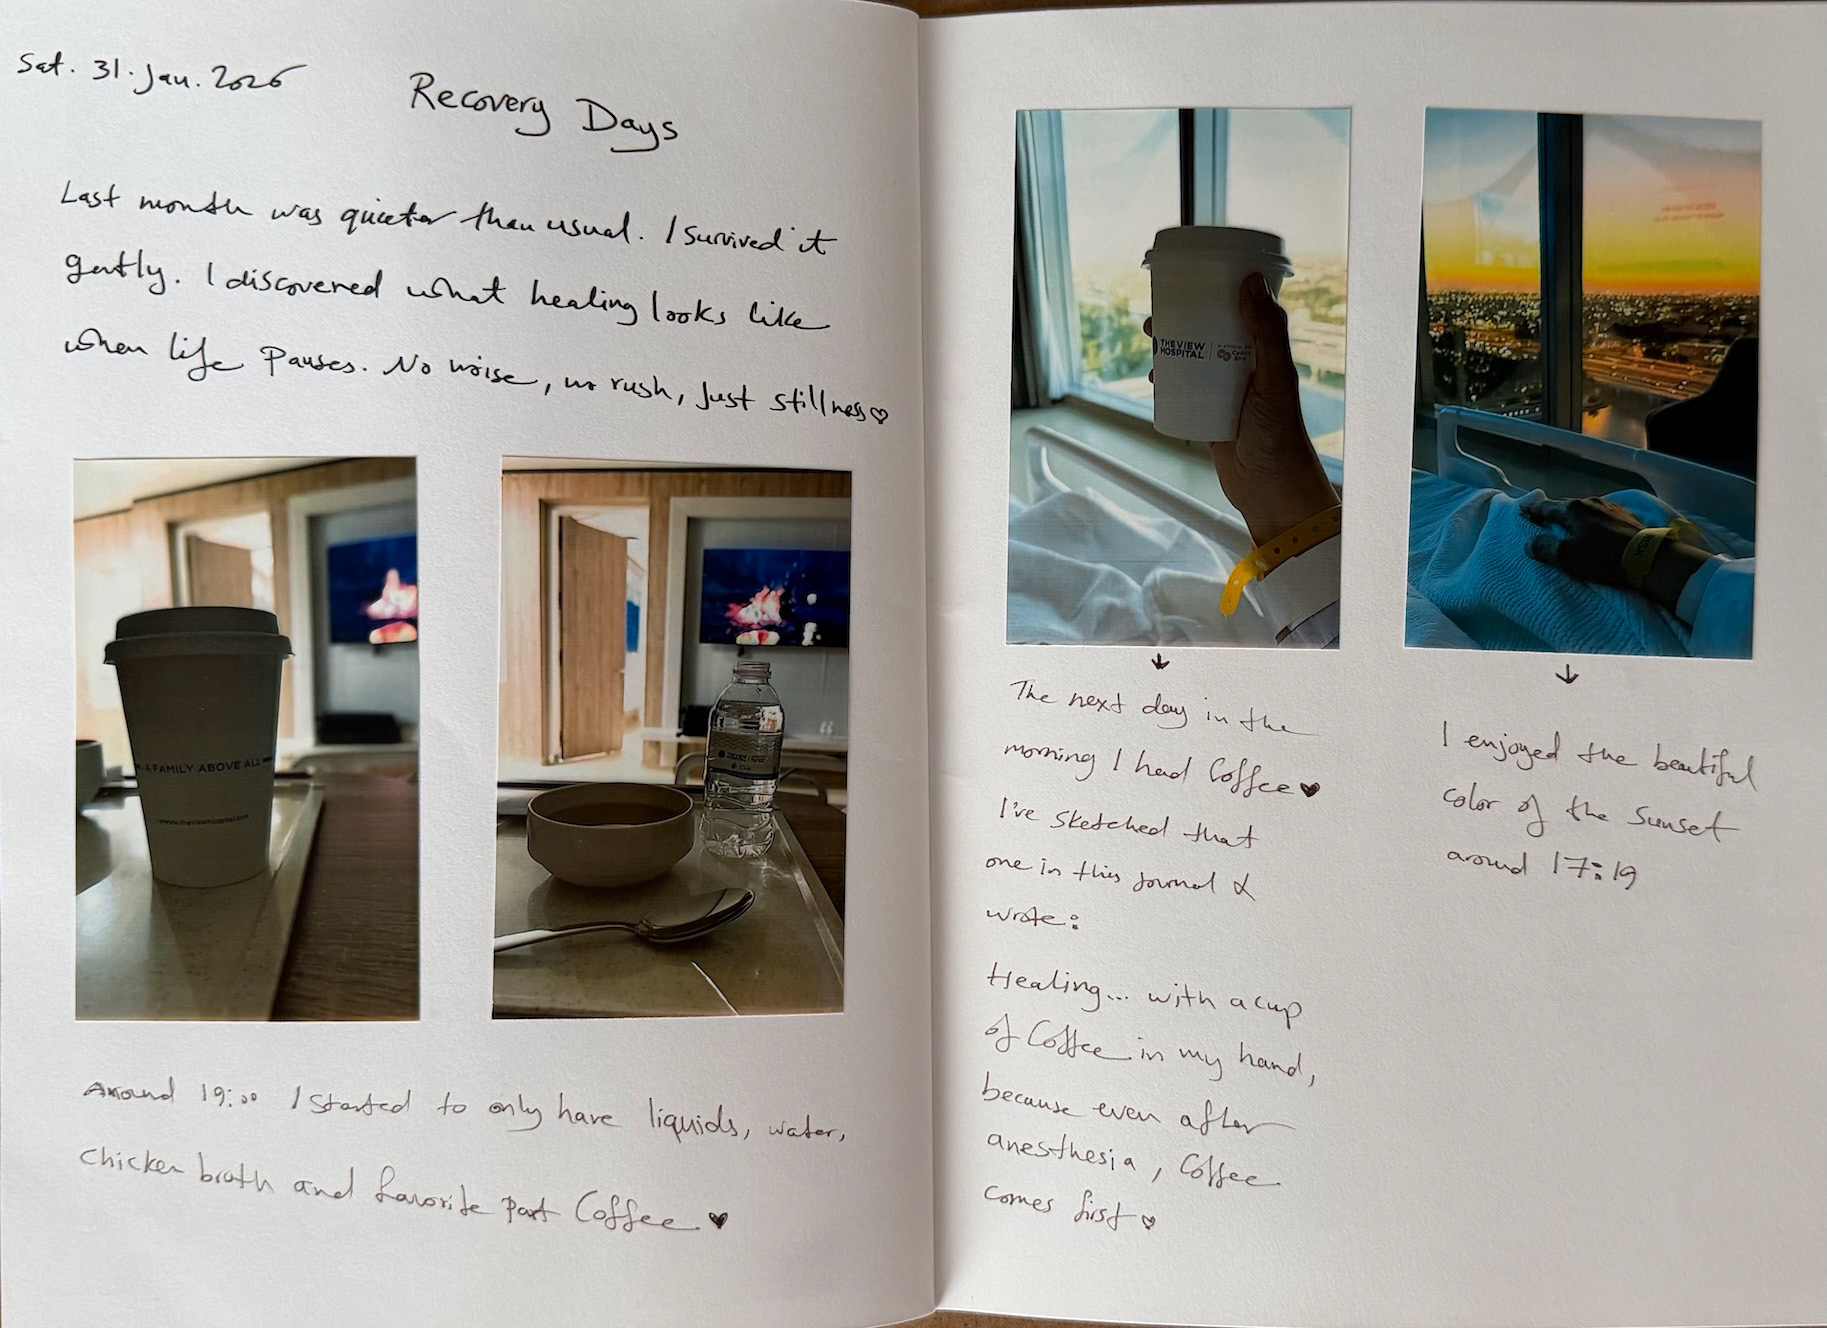 Sat. 31. Jan. 2026
Recovery Days
Last month was quieter than usual. I survived it
gently. I discovered what healing looks like
when life Pauses. No noise, no rush, Just stillness♡
A FAMILY ABOVE ALL
www.theviewhospital.com
Around 19:00 I started to only have liquids, water,
Chicken broth and favorite Part Coffee ♥
THE VIEW
HOSPITAL
Cedars
Sinai
The next day in the
morning I had Coffee ♥
I've sketched that
one in this Journal &
wrote:
Healing... with a cup
of Coffee in my hand,
because even after
anesthesia, Coffee
comes first ♡
I enjoyed the beautiful
color of the Sunset
around 17:19